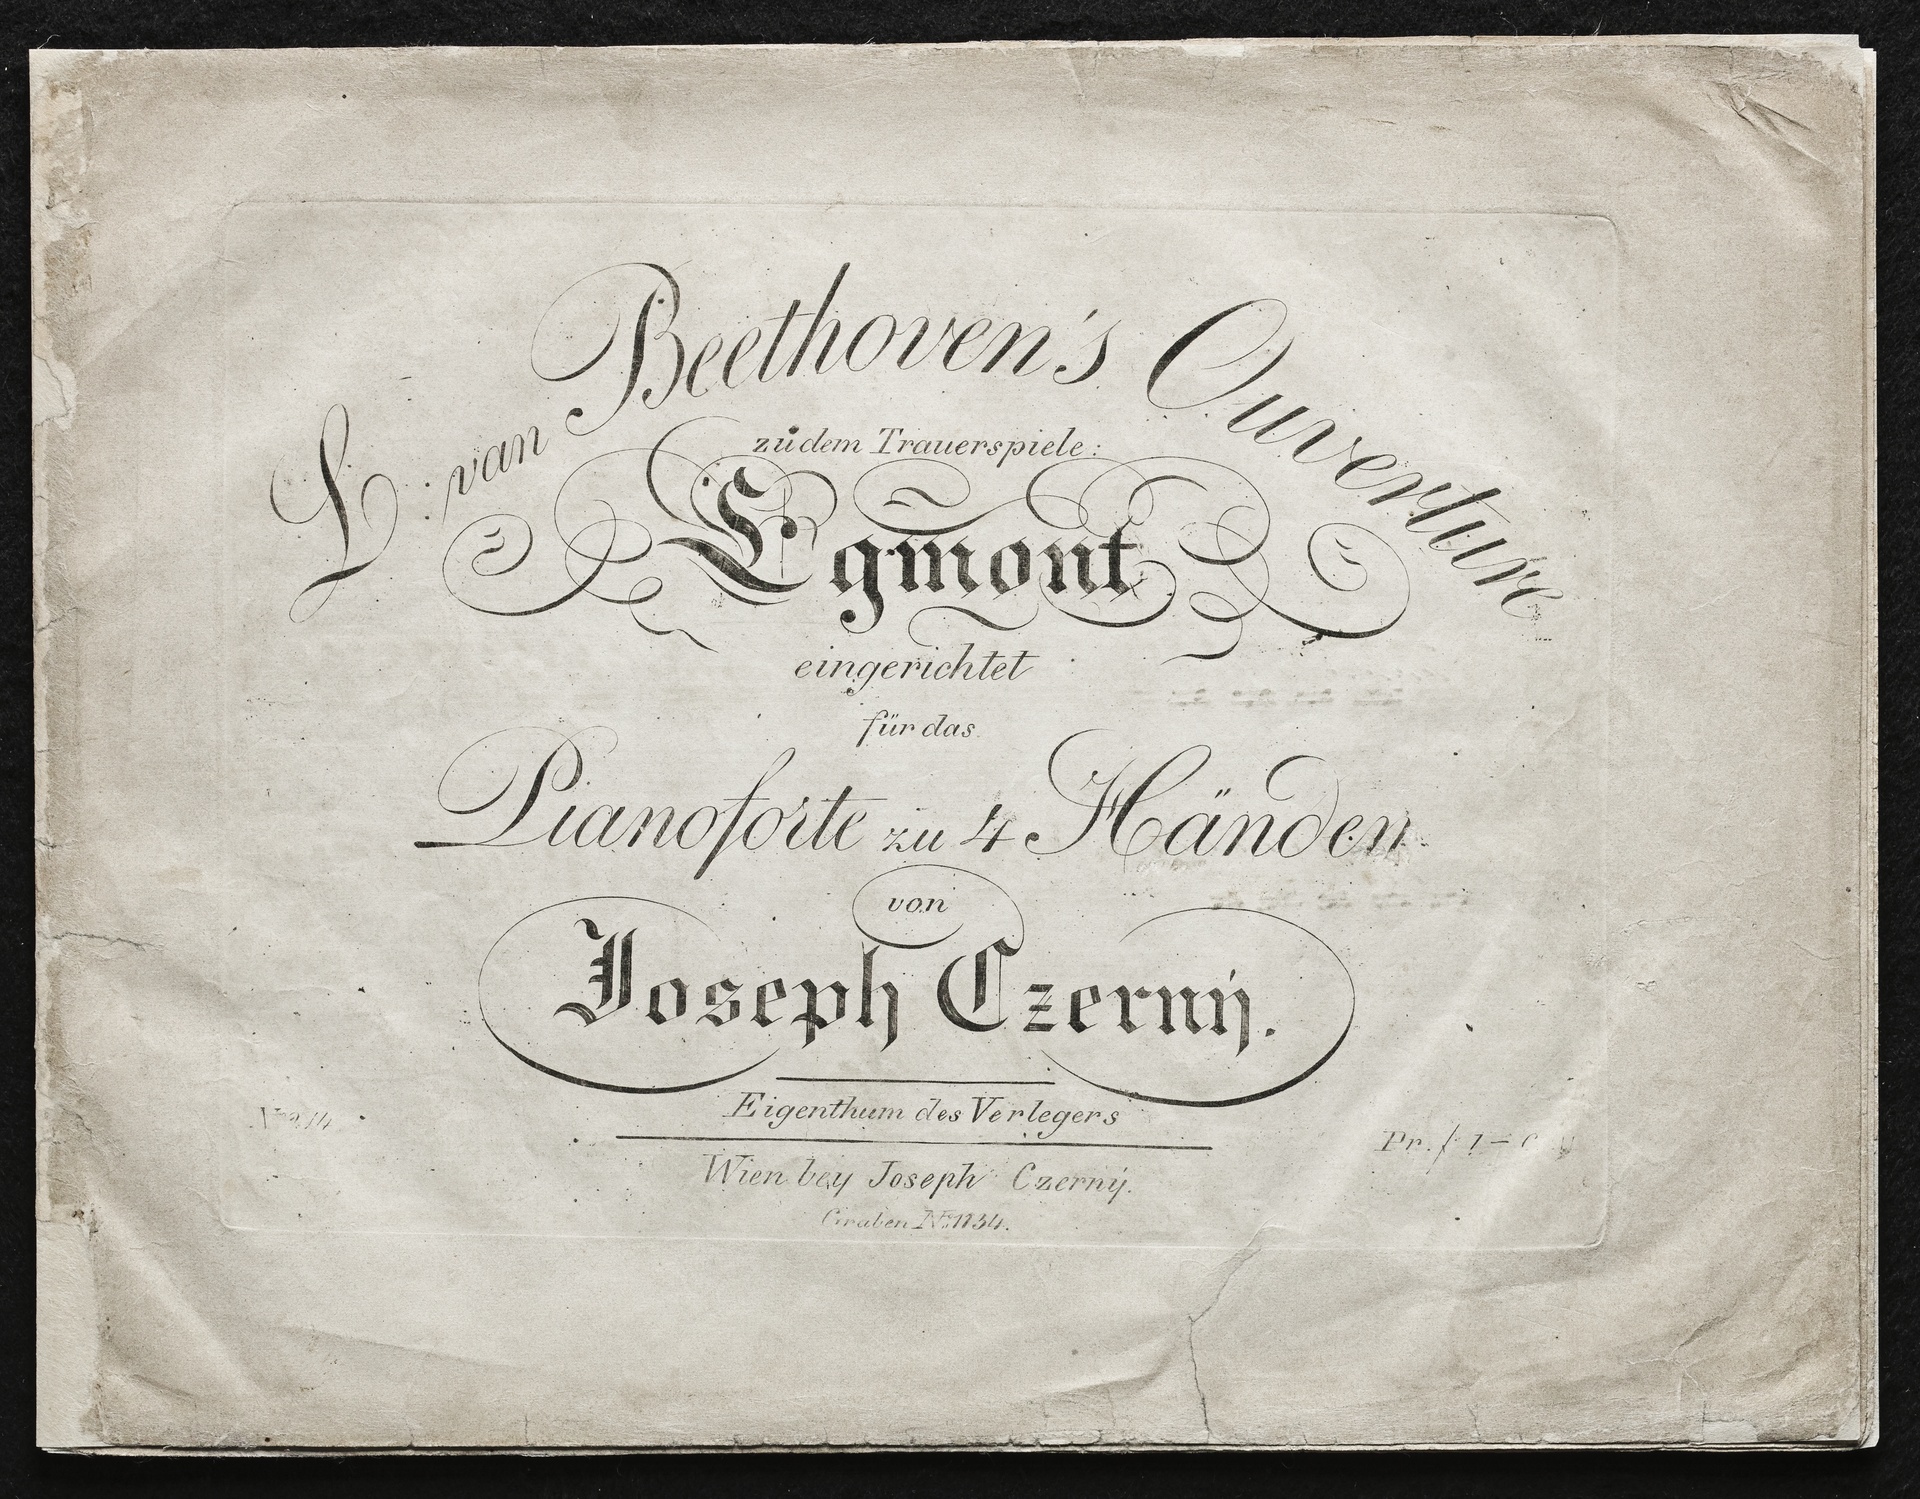 L: van Beethoven's Ouverture
zu dem Trauerspiele:
Egmont
eingerichtet
für das
Pianoforte zu 4 Händen
von
Joseph Czernÿ.
Eigenthum des Verlegers
Wien bey Joseph Czernÿ.
Graben No. 1134.
Pr. f 1 –